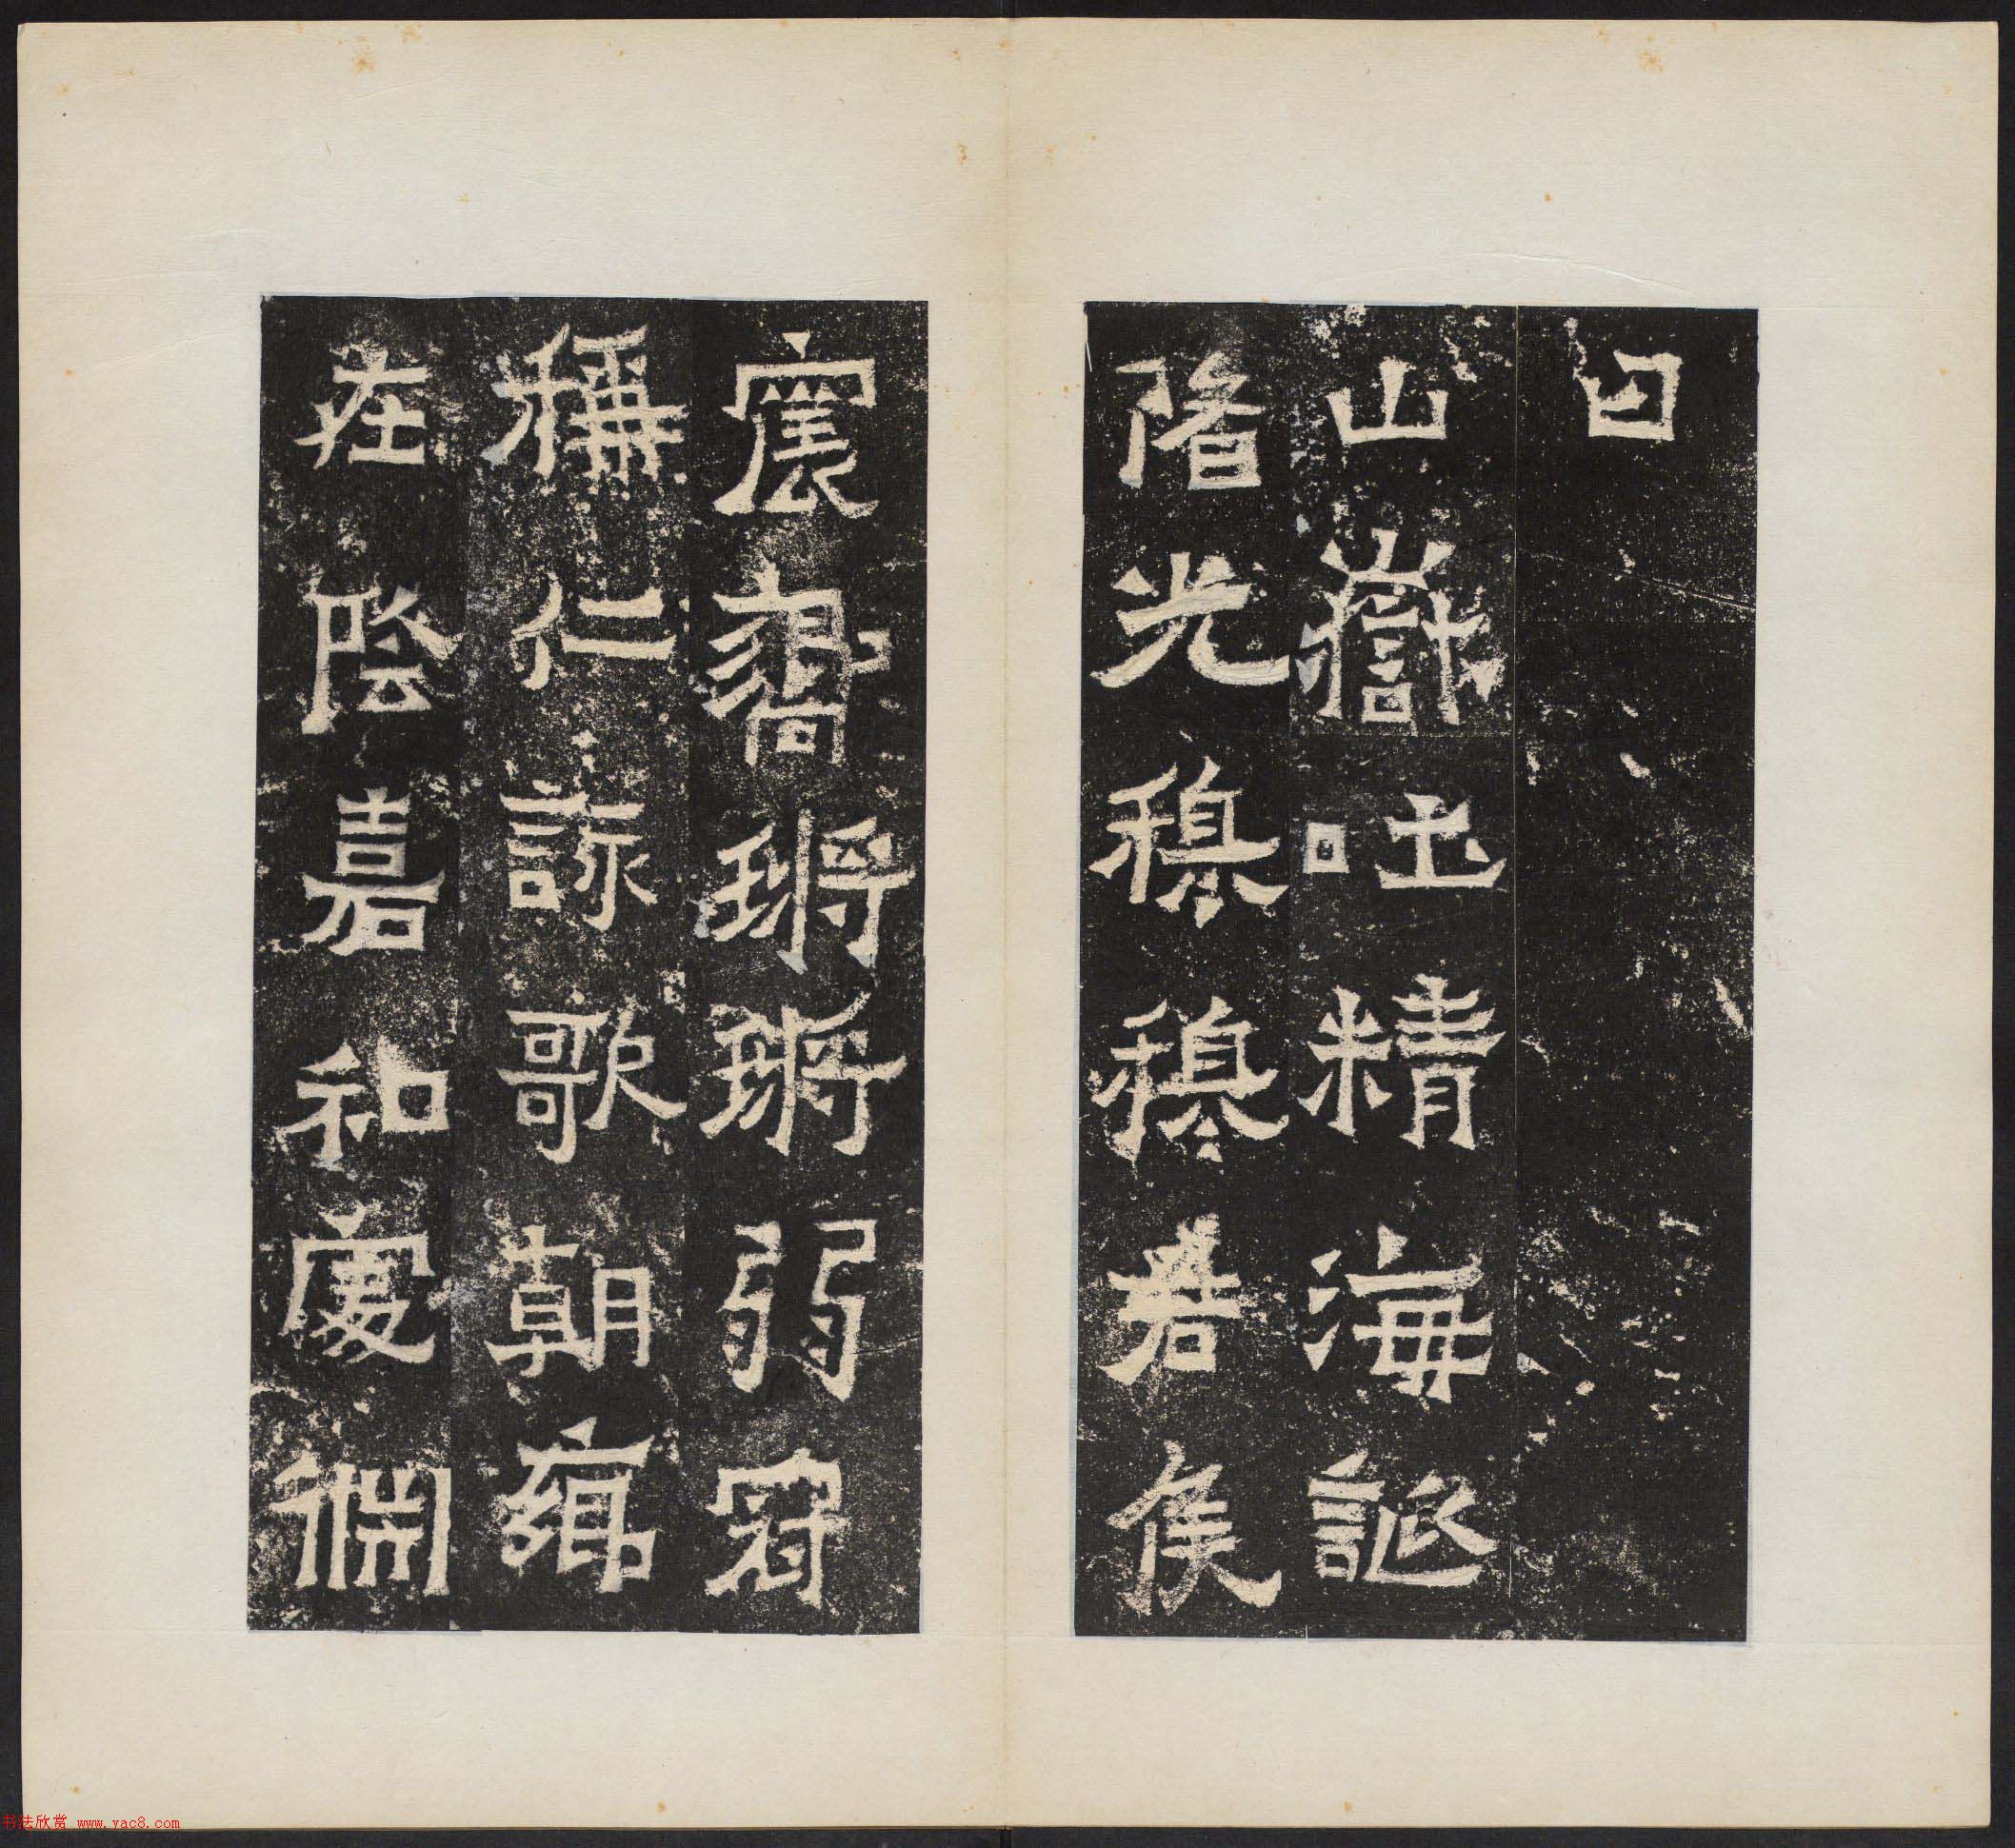 曰
山嶽吐精海誕
陼光穆穆君侯
震響鏘鏘弱冠
稱仁詠歌朝鄉
在陰嘉和處淵
书法欣赏 www.yac8.com